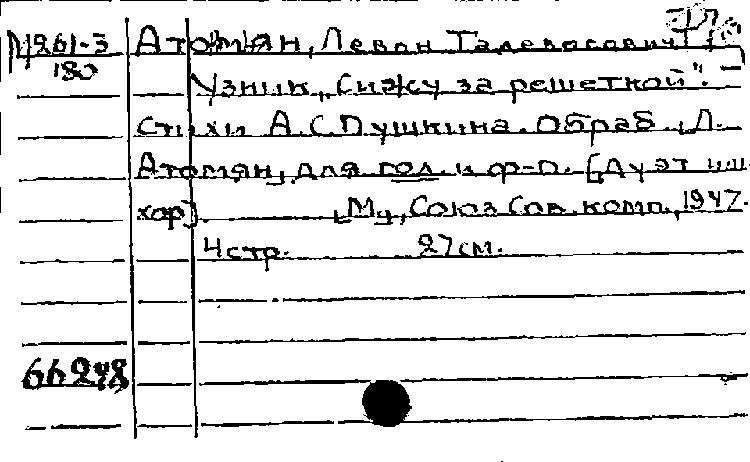 М 261-3 Атомян, Леван Тадевосович
180 Узник „Сижу за решеткой".
Стихи А.С.Пушкина. Обраб. Л.
Атомян, для гол. и ф-п. [Дуэт или
хор]. [М], Союз Сов. комп., 1947.
4 стр. 27 см.
66248